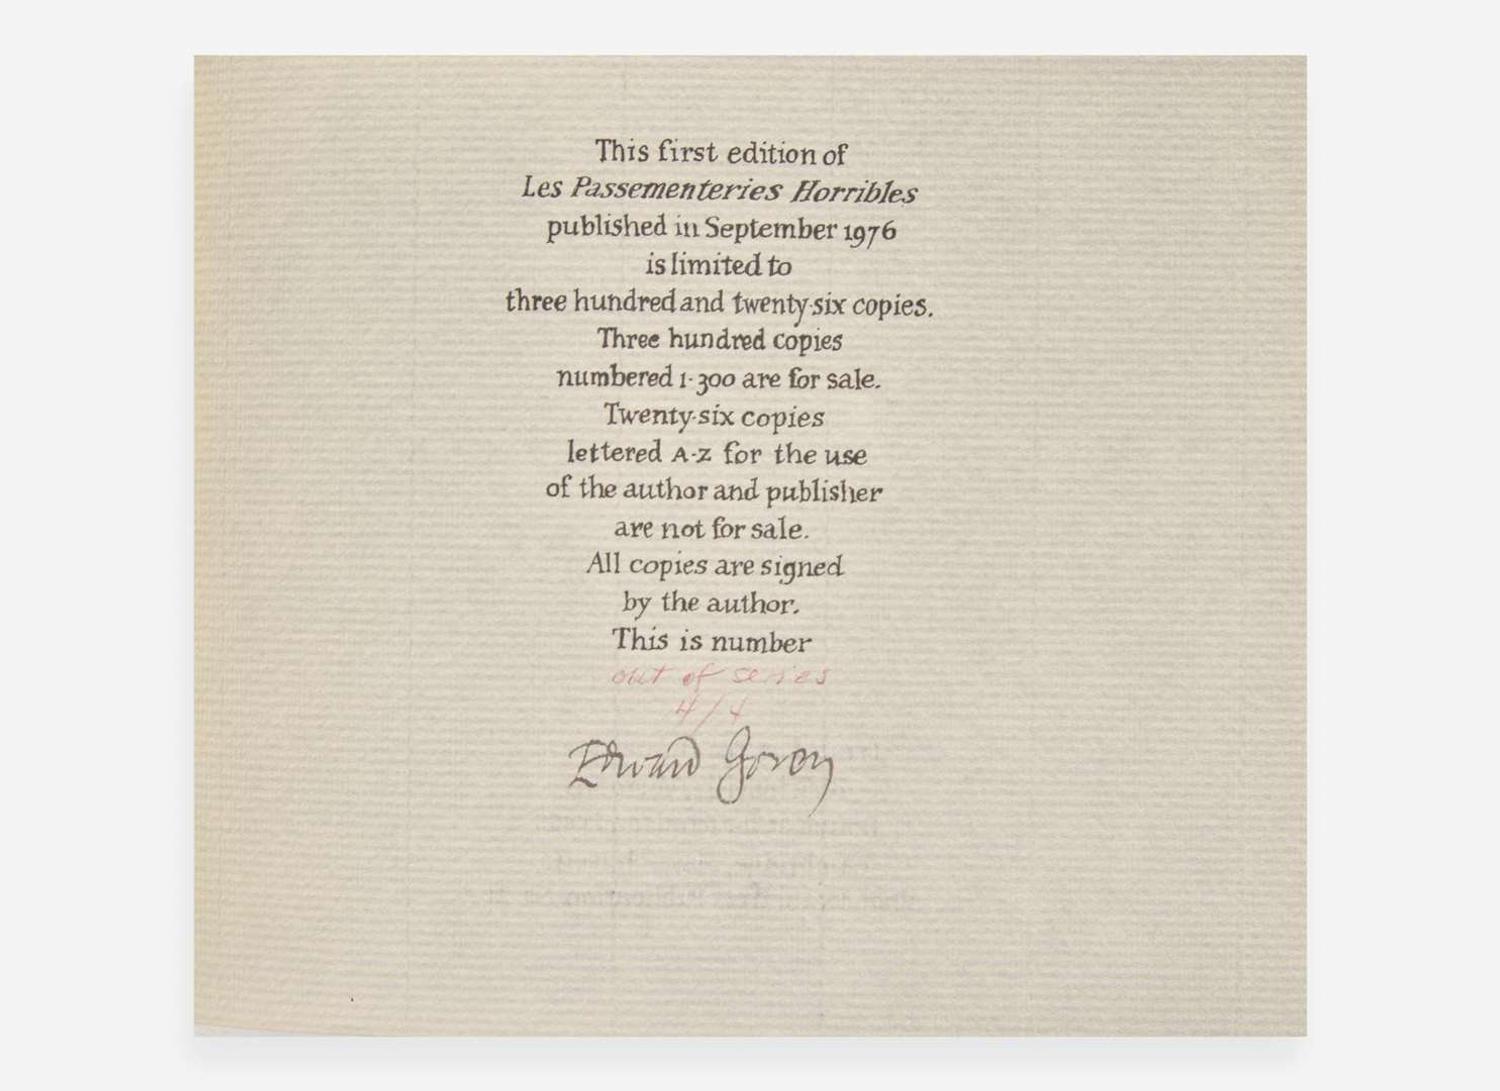 This first edition of
Les Passementeries Horribles
published in September 1976
is limited to
three hundred and twenty-six copies.
Three hundred copies
numbered 1-300 are for sale.
Twenty-six copies
lettered A-Z for the use
of the author and publisher
are not for sale.
All copies are signed
by the author.
This is number
out of series
4/4
Edward Gorey